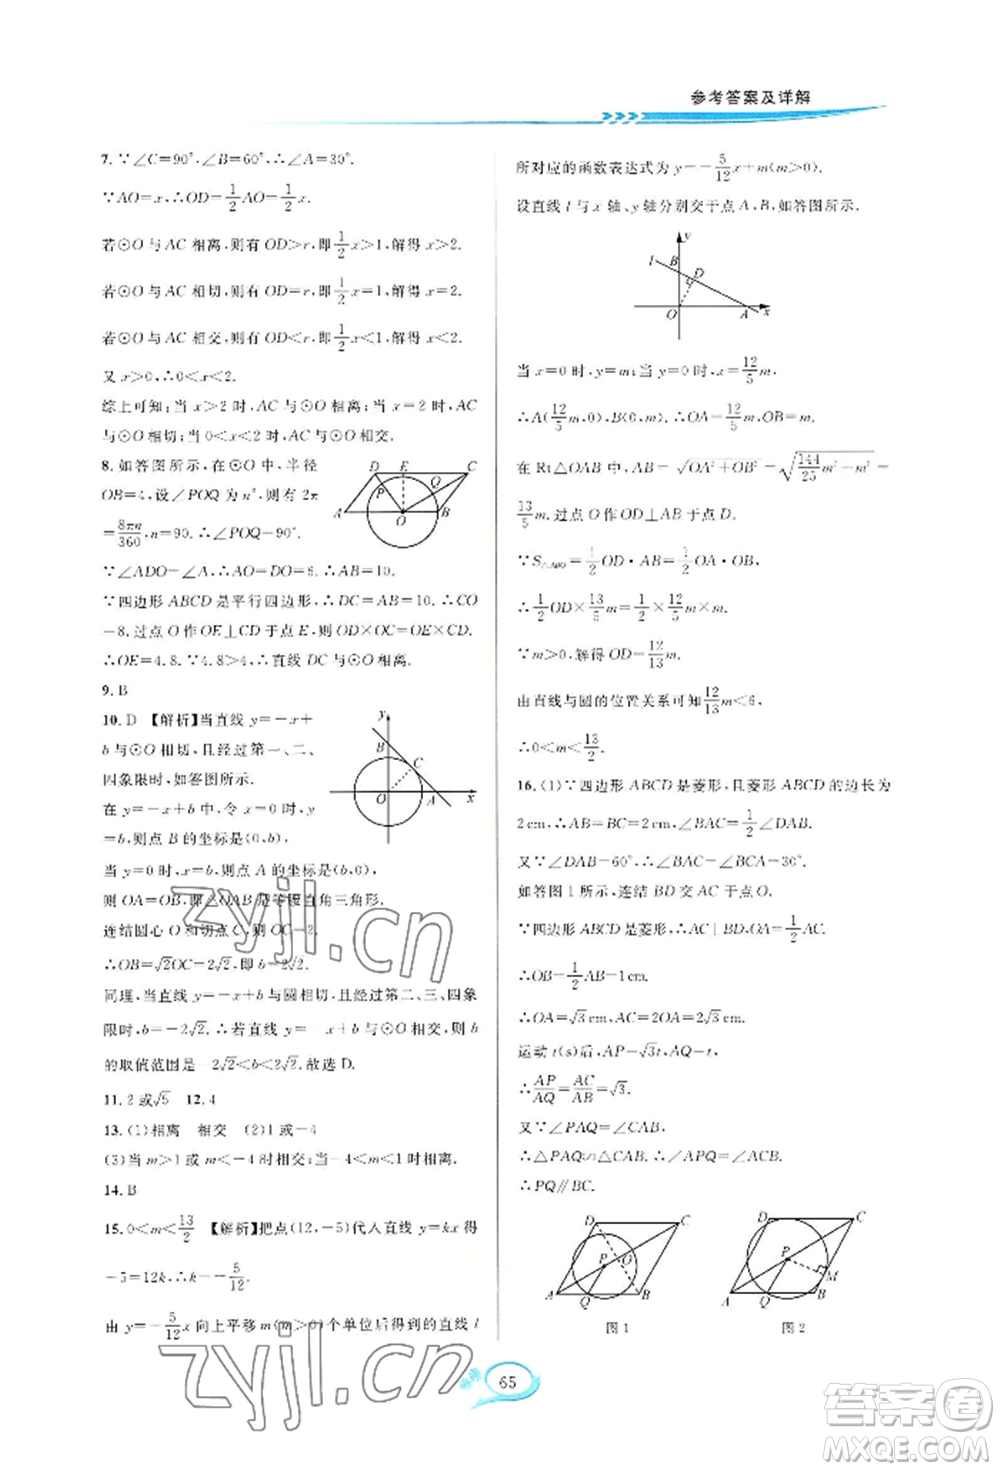 参考答案及详解
7. ∵∠C=90°,∠B=60°,∴∠A=30°.
∵AO=x,∴OD=1/2AO=1/2x.
若⊙O与AC相离,则有OD>r,即1/2x>1,解得x>2.
若⊙O与AC相切,则有OD=r,即1/2x=1,解得x=2.
若⊙O与AC相交,则有OD<r,即1/2x<1,解得x<2.
又x>0,∴0<x<2.
综上可知:当x>2时,AC与⊙O相离;当x=2时,AC
与⊙O相切;当0<x<2时,AC与⊙O相交.
8. 如答图所示,在⊙O中,半径
OB=4,设∠POQ为n°,则有2π
=8πn/360,n=90.∴∠POQ=90°.
∵∠ADO=∠A,∴AO=DO=6.∴AB=10.
∵四边形ABCD是平行四边形,∴DC=AB=10.∴CO
=8.过点O作OE⊥CD于点E,则OD×OC=OE×CD.
∴OE=4.8.∵4.8>4,∴直线DC与⊙O相离.
D E C
P Q
A O B
9. B
10. D 【解析】当直线y=-x+
b与⊙O相切,且经过第一、二、
四象限时,如答图所示.
在y=-x+b中,令x=0时,
y=b,则点B的坐标是(0,b);
当y=0时,x=b,则点A的坐标是(b,0),
则OA=OB,即△OAB是等腰直角三角形,
连结圆心O和切点C,则OC=2.
∴OB=√2OC=2√2,即b=2√2.
同理,当直线y=-x+b与圆相切,且经过第二、三、四象
限时,b=-2√2.∴若直线y=-x+b与⊙O相交,则b
的取值范围是-2√2<b<2√2.故选D.
y
B
C
O A x
11. 2或√5 12. 4
13. (1)相离 相交 (2)1或-4
(3)当m>1或m<-4时相交;当-4<m<1时相离.
14. B
15. 0<m<13/2 【解析】把点(12,-5)代入直线y=kx得
-5=12k,∴k=-5/12.
由y=-5/12x向上平移m(m>0)个单位后得到的直线l
所对应的函数表达式为y=-5/12x+m(m>0).
设直线l与x轴、y轴分别交于点A,B,如答图所示.
y
l B D
O A x
当x=0时,y=m;当y=0时,x=12/5m,
∴A(12/5m,0),B(0,m).∴OA=12/5m,OB=m.
在Rt△OAB中,AB=√OA²+OB²=√144/25m²+m²=
13/5m.过点O作OD⊥AB于点D.
∵S△ABO=1/2OD·AB=1/2OA·OB,
∴1/2OD×13/5m=1/2×12/5m×m.
∵m>0,解得OD=12/13m.
由直线与圆的位置关系可知12/13m<6,
∴0<m<13/2.
16. (1)∵四边形ABCD是菱形,且菱形ABCD的边长为
2cm,∴AB=BC=2cm,∠BAC=1/2∠DAB.
又∵∠DAB=60°,∴∠BAC=∠BCA=30°.
如答图1所示,连结BD交AC于点O.
∵四边形ABCD是菱形,∴AC⊥BD,OA=1/2AC.
∴OB=1/2AB=1cm.
∴OA=√3cm,AC=2OA=2√3cm.
运动t(s)后,AP=√3t,AQ=t,
∴AP/AQ=AC/AB=√3.
又∵∠PAQ=∠CAB,
∴△PAQ∽△CAB.∴∠APQ=∠ACB.
∴PQ∥BC.
D C
P O
A Q B
图1
D C
P
M
A Q B
图2
65
zyjl.cn
zyjl.cn
答案圈
MXQE.COM